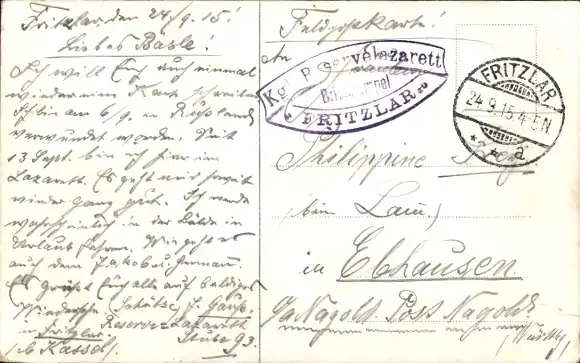 Fritzlar, den 24/9. 15!
Liebes Bäsle!
Ich will Euch auch einmal
wieder eine Kart schreiben
Ich bin am 6/9. in Rußland
verwundet worden. Seit
13 Sept. bin ich hier im
Lazarett. Es geht mir soweit
wieder ganz gut. Ich werde
wahrscheinlich in der Bälde in
Urlaub fahren. Wie geht es
auch dem Jakob u. German.
Es grüßt Euch alle auf baldiges
Wiedersehn Schütze J. Gauß.
in Fritzlar Reserve-Lazarett
b. Kassel. Stube 93.
Feldpostkarte!
An
Kgl. Reservelazarett
FRITZLAR
FRITZLAR
24.9.15.4-5N
* * a
Philippine
(beim Lam)
in Ebhausen
Oa Nagold. Post Nagold
(Württbg)